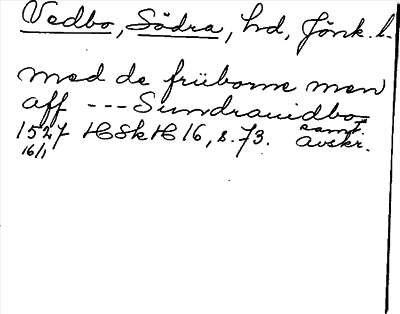 Vedbo, Södra, hd, Jönk. l.
med de friiborne men
aff --- Sundrauidbo
1527 HSkH 16, s. 73. samt. avskr.
16/1